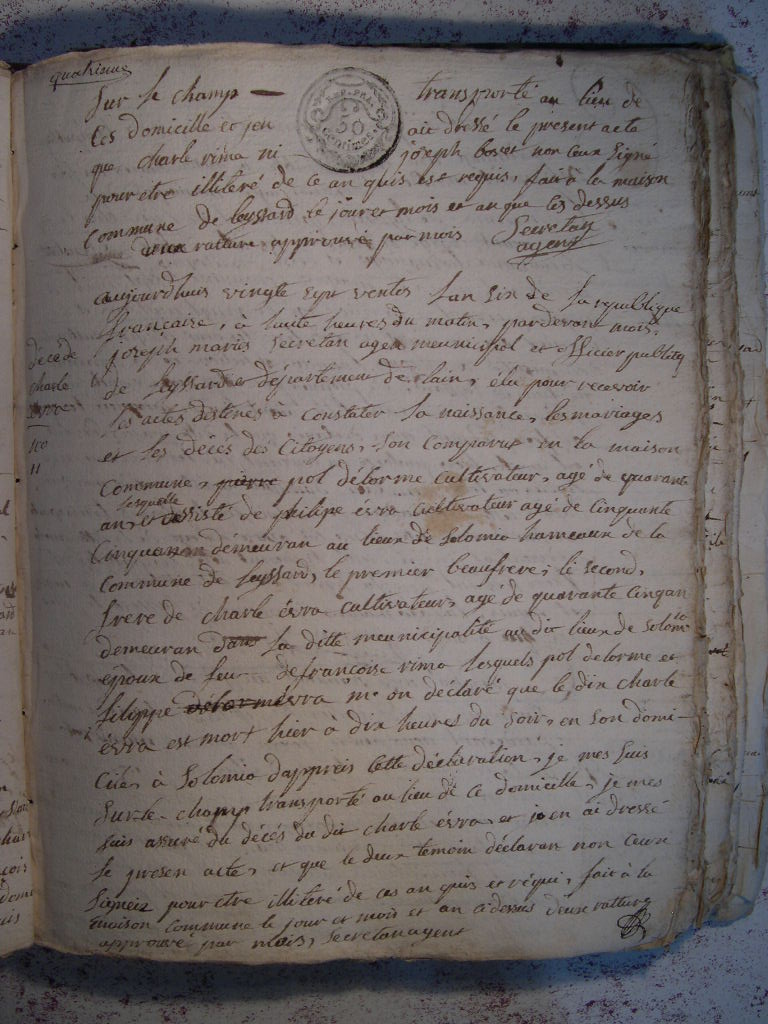 quatrieme
Sur le champ — transporté au lieu de
REP. FRA.
50
Centimes
Ces domicille et jen ai dressé le present acte
que charle rima ni joseph bovet non ceux signé
pour etre illiteré de ce an quis est requis, fait à la maison
Commune de leyssard le jour et mois et an que les dessus
deux rature approuvé par mois Secretan
agent
aujourdhuis vingte sept ventos lan six de la republique
française, à huite heures du matin, pardevant mois,
joseph marie Secretan agen meunicipal et officier publicq
de leyssard département de lain, élu pour recevoir
les actes destinés à constater la naissance, les mariages
et les décés des Citoyens, son comparut en la maison
Commune, pierre pol délorme cultivateur, agé de quarante
lesquelle
an, et assisté de philipe évra cultivateur agé de Cinquante
Cinquan demeuran au lieux de Solomia hameaux de la
Commune de leyssard, le premier beaufrere, le second,
frere de charle évra cultivateur, agé de quarante Cinq an
demeuran dans la ditte meunicipalité au dit lieux de Solomia
époux de feu defrancoise rima lesquels pol delorme et
filippe délorme évra m'on déclaré que le dix charle
évra est mort hier à dix heures du soir, en son domi-
cile, à Solomia dappreis cette déclaration, je mes suis
Sur-le-champ transporté au lieu de ce domicille, je mes
suis assuré du décés du dit charle évra, et jen ai dressé
le presen acte, et que le deux temoin déclaran non ceux
Signéz pour etre illiteré de ces an quis et réqui, fait à la
maison commune le jour et mois et an cidessus deux rattures
approuvé par mois, Secretan agent
décé de
charle
évra
100
11